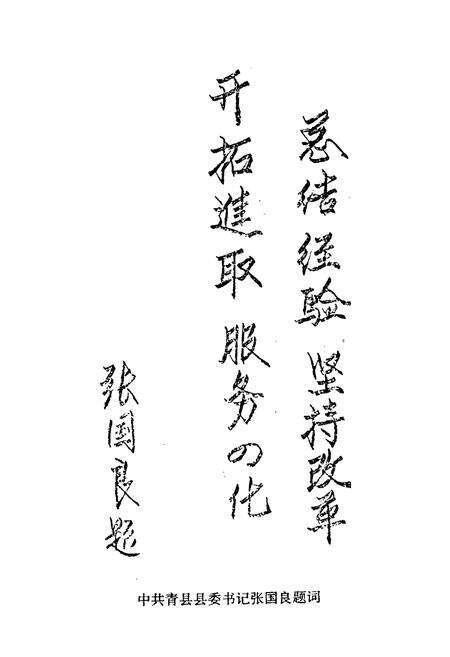 总结经验 坚持改革
开拓進取 服务四化
张国良题
中共青县县委书记张国良题词